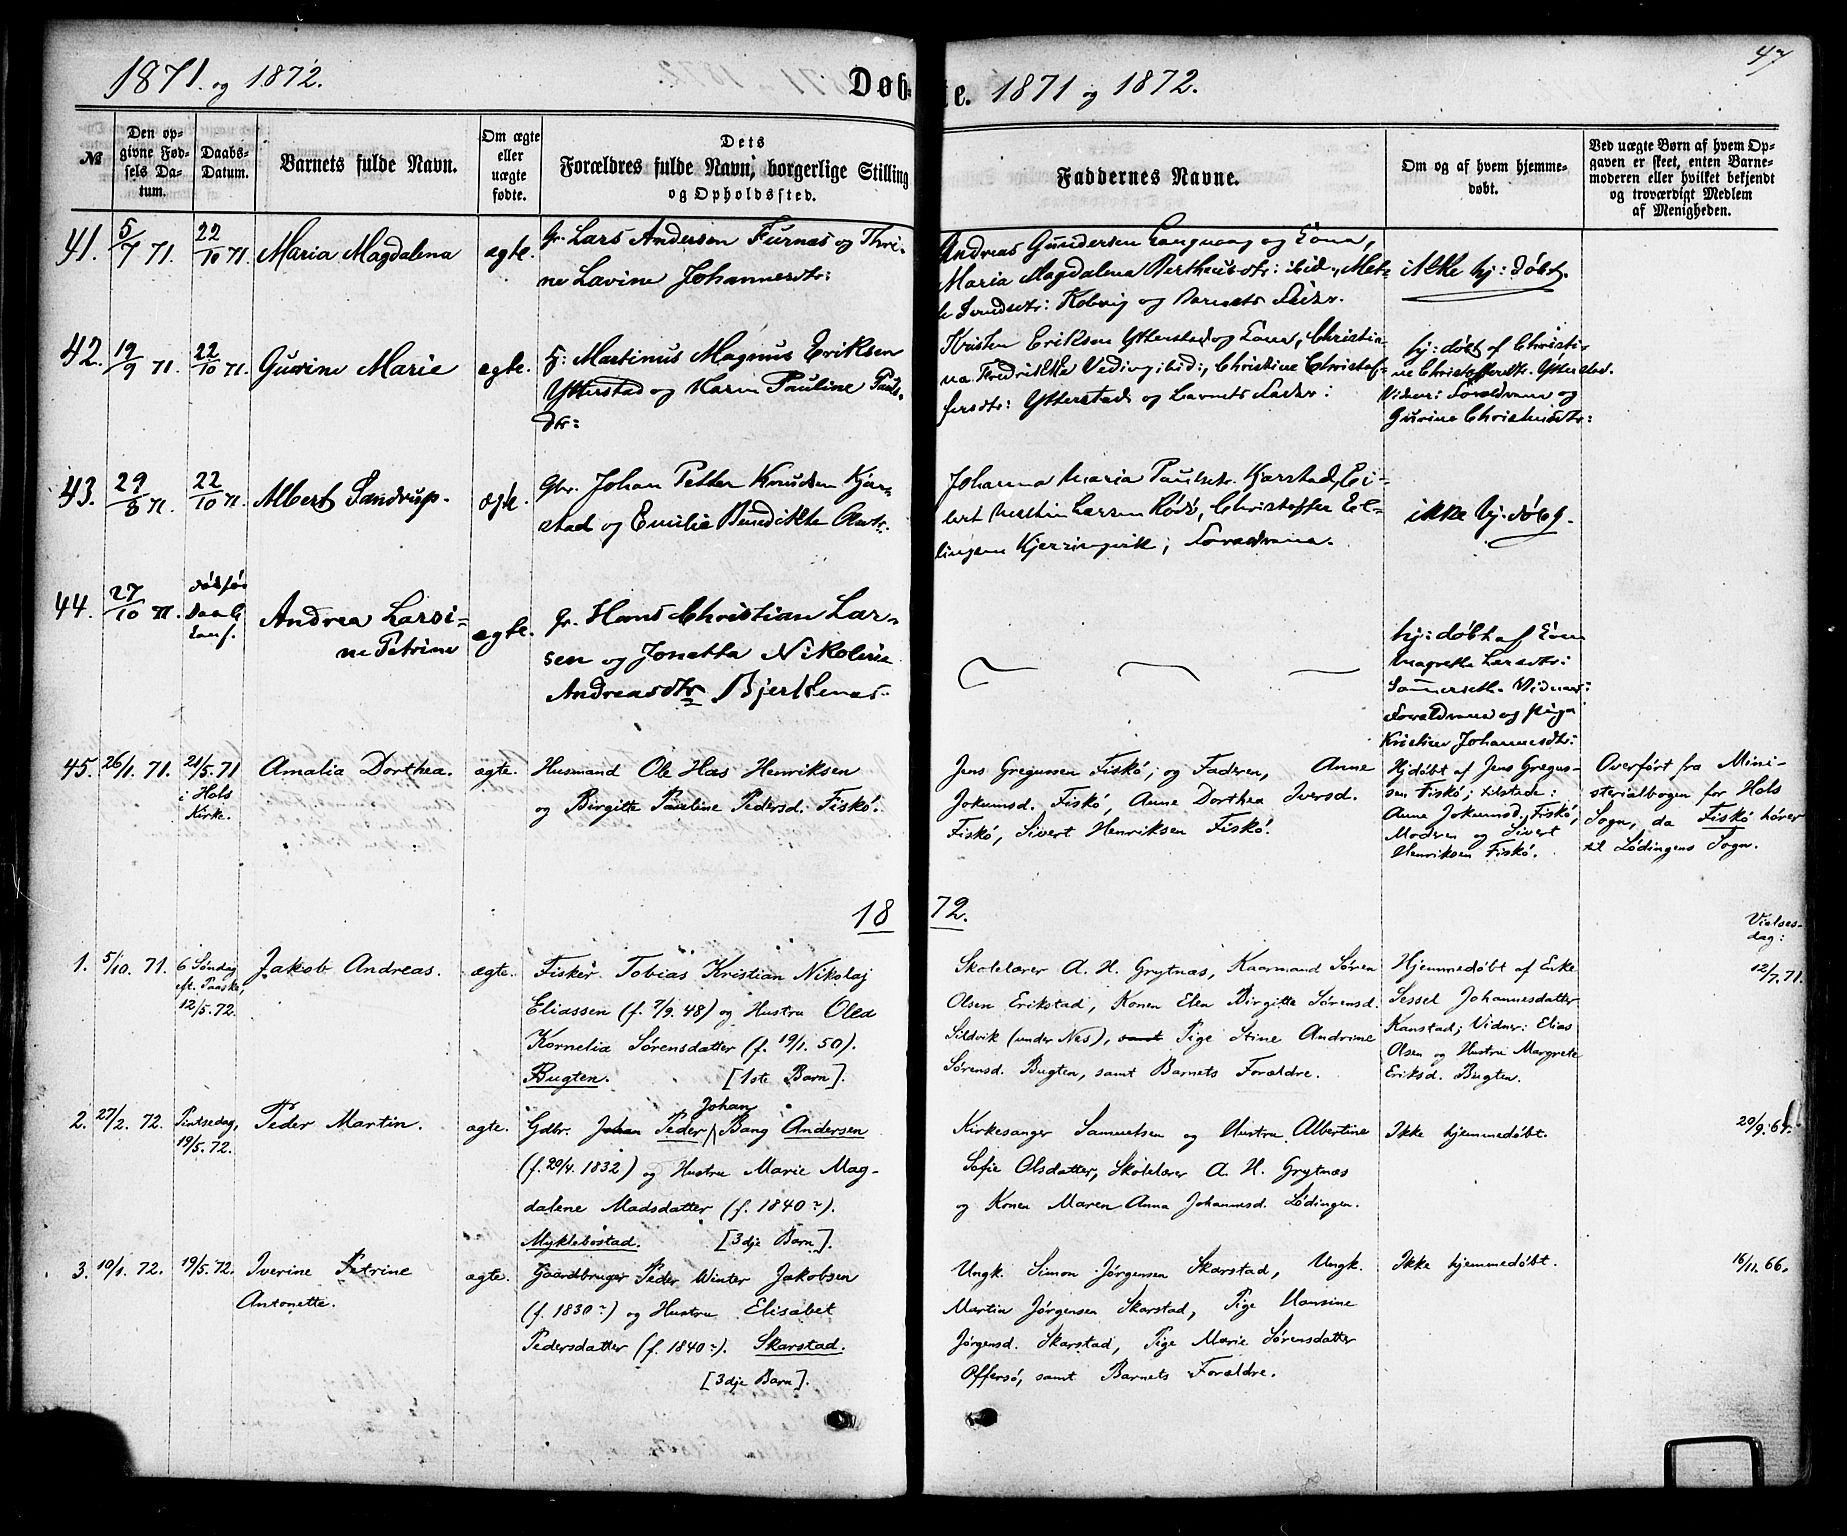 1871. og 1872.
Døb=
te. 1871 og 1872.
47
№
Den op-
givne Fød-
sels Da-
tum.
Daabs-
Datum.
Barnets fulde Navn.
Om ægte
eller
uægte
fødte.
Dets
Forældres fulde Navn, borgerlige Stilling
og Opholdssted.
Faddernes Navne.
Om og af hvem hjemme-
døbt.
Ved uægte Børn af hvem Op-
gaven er skeet, enten Barne-
moderen eller hvilket bekjendt
og troværdigt Medlem
af Menigheden.
41. 5/7 71. 22/10 71. Maria Magdalena ægte. Gr. Lars Andersen Furnæs og Thri-
ne Lavine Johannesdtr:
Andreas Gundersen og Kona,
Maria Magdalena ibid., Met-
og Barnets Fader.
ikke hj: døbt.
42. 19/9 71. 22/10 71. Gurine Marie ægte. Martinus Magnus Eriksen
Ytterstad og Karen Pauline Pauls-
dtr:
Kristen Eriksen Ytterstad og Kona, Christia-
na Fredrikke ibid:, Christine Christof-
fersdtr: Ytterstad og Barnets Fader:
hj: døbt af Christi-
ne Christoffersdtr. Ytterstad.
Vidner: Forældrene og
Gurine Christensdtr:
43. 29/8 71. 22/10 71. Albert Sandrup. ægte. Gbr. Johan Petter Knudsen Kjær-
stad og Emilie Benedikte
Johanna Maria Paulsdtr. Kjærstad, Ei-
lert Larsen Rødø, Christoffer El-
lingsen Kjerringvik; Forældrene.
ikke hj: døbt.
44. 27/10 71. Daab
Andrea Larsi-
ne Petrine
ægte. Gr. Hans Christian Lar-
sen og Jonetta Nikoline
Andreasdtr
hj: døbt af Kone
Magrethe Larsdtr:
Vidner:
Forældrene og Pige
Kristine Johannesdtr:
45. 26/1. 71. 21/5. 71
i Hols
Kirke.
Amalia Dorthea. ægte. Husmand Ole Has Henriksen
og Birgitte Pauline Pedersd. Fiskø.
Jens Gregussen Fiskø; og Faderen, Anne
Jokumsd. Fiskø, Anne Dorthea Iversd.
Fiskø, Sivert Henriksen Fiskø.
Hjdøbt af Jens Gregus-
sen Fiskø; tilstede:
Anne Jokumsd. Fiskø,
Moderen og Sivert
Henriksen Fiskø.
Overført fra Mini-
sterialbogen for Hols
Sogn, da Fiskø hører
til Lødingens Sogn.
18 72.
Vielses-
dag:
1. 5/10. 71. 6 Søndag
eft. Paaske,
12/5. 72.
Jakob Andreas. ægte. Fisker Tobias Kristian Nikolaj
Eliassen (f. 7/9. 48) og Hustru Olea
Kornelia Sørensdatter (f. 19/1. 50).
Bugten. [1ste Barn].
Skolelærer A. H. Grytnæs, Kaarmand Søren
Olsen Erikstad, Konen Elen Birgitte Sørensd.
Sildvik (under Næs), samt Pige Stine Andrine
Sørensd. Bugten, samt Barnets Forældre.
Hjemmedøbt af Enke
Sessel Johannesdatter
Kanstad; Vidner: Elias
Olsen og Hustru Margrete
Eriksd. Bugten.
12/7. 71.
2. 27/2. 72. Pintsedag,
19/5. 72.
Peder Martin. ægte. Gdbr. Johan Peder Johan Bang Andersen
(f. 29/4. 1832) og Hustru Marie Mag-
dalene Madsdatter (f. 1840?).
Myklebostad. [3dje Barn].
Kirkesanger Samuelsen og Hustru Albertine
Sofie Olsdatter, Skolelærer A. H. Grytnæs
og Konen Maren Anna Johannesd. Lødingen.
Ikke hjemmedøbt.
3. 19/1. 72. 19/5. 72. Iverine Petrine
Antonette.
ægte. Gaardbruger Peder Winter Jakobsen
(f. 1830?) og Hustru Elisabet
Pedersdatter (f. 1840?). Skarstad.
[3dje Barn].
Ungk. Simon Jørgensen Skarstad, Ungk.
Martin Jørgensen Skarstad, Pige Hansine
Jørgensd. Skarstad, Pige Marie Sørensdatter
Offersø, samt Barnets Forældre.
Ikke hjemmedøbt.
16/11. 66.